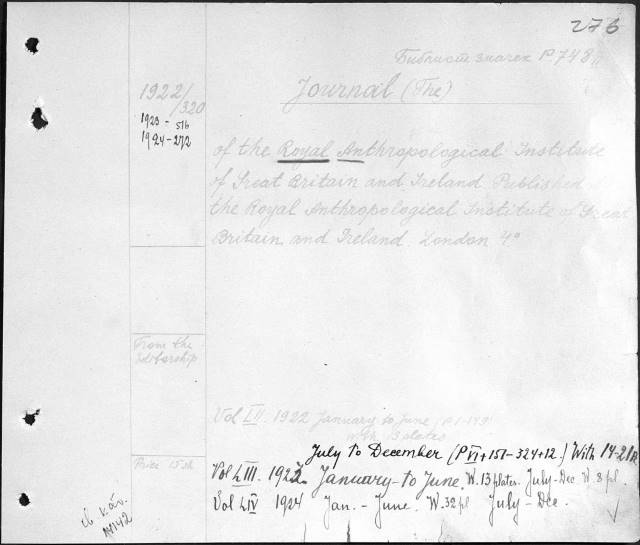 276
Библиот. значек P 748
1922/320
1923 - 516
1924 - 272
Journal (The)
of the Royal Anthropological Institute
of Great Britain and Ireland Published
the Royal Anthropological Institute of Great
Britain and Ireland. London 4°
From the
Editorship
Vol LII 1922 January to June (P 1-149)
with 3 plates
July to December (P VI + 151 - 324 + 12.) With 14-21
Price 15 sh
Vol LIII. 1923. January - to June. W. 13 plates. July - Dec. W. 8 pl.
Vol LIV 1924 Jan. - June. W. 32 pl July - Dec.
№142